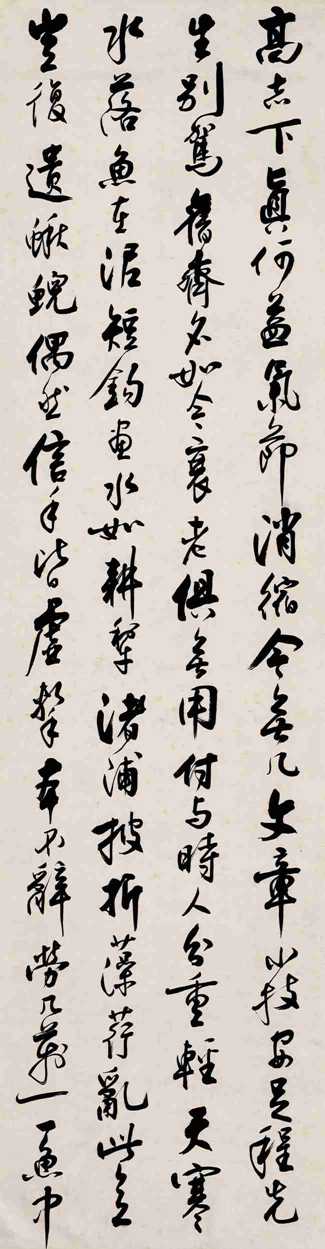 高言下真何益氣節消縮今無几文章小技安足程先
生別駕舊齊名如今衰老俱無用付與時人分重輕天寒
水落魚在泥短鉤畫水如耕犂渚蒲披折藻荇亂此意
豈復遺鰍鯢偶然信手皆虛擊本不辭勞几萬一一魚中